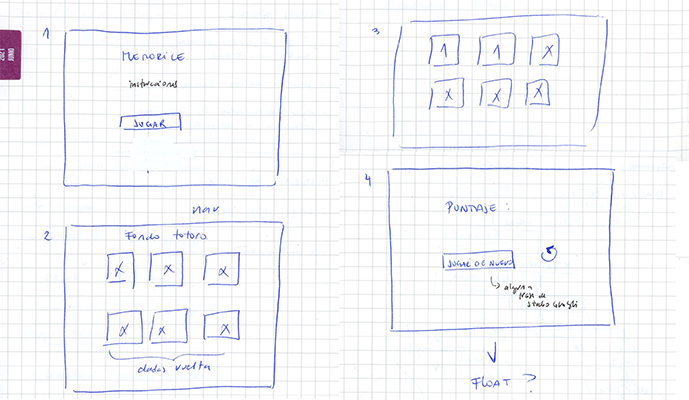 1
MEMORILE
instrucciones
JUGAR
nav
2
Fondo totoro
x x x
x x x
dadas vuelta
3
1 1 X
X X X
4
PUNTAJE :
JUGAR DE NUEVO
alguna
frase de
studio Ghibli
FLOAT ?